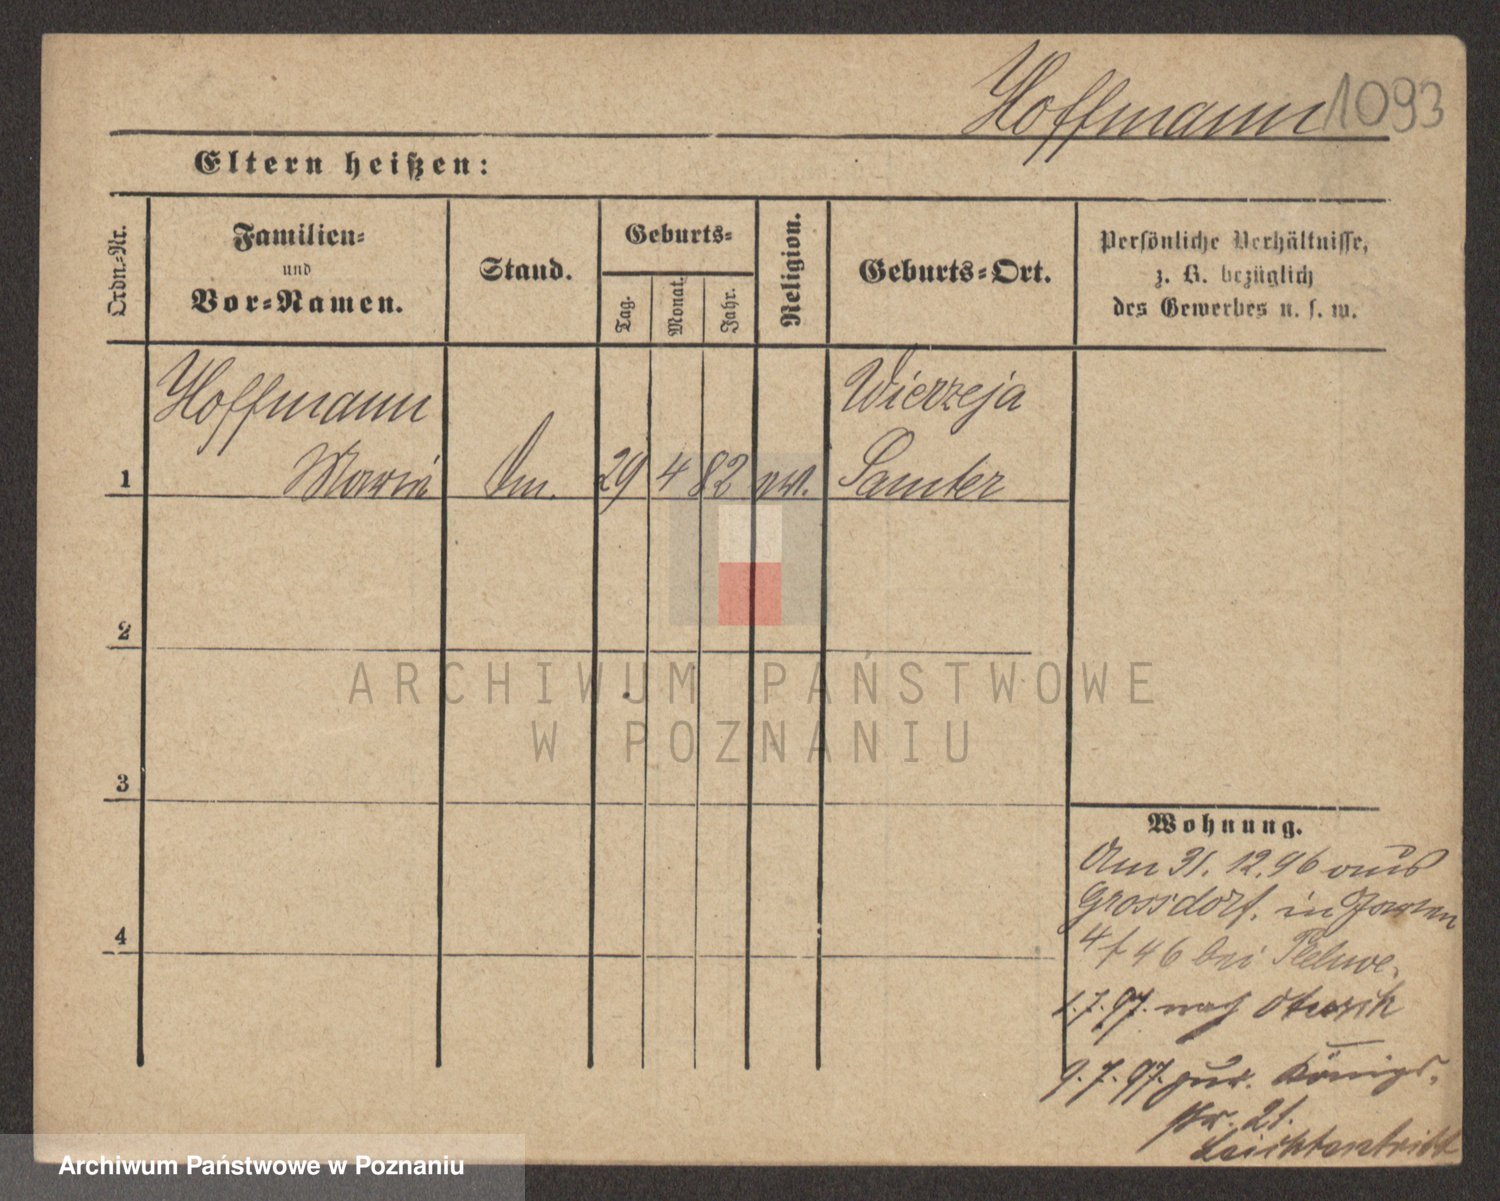 Hoffmann 1093
Eltern heißen:
Ordn.-Nr.
Familien-
und
Vor-Namen.
Stand.
Geburts-
Tag.
Monat.
Jahr.
Religion.
Geburts-Ort.
Persönliche Verhältnisse,
z. B. bezüglich
des Gewerbes u. s. w.
Hoffmann
Maria
1
29 4 82
Wierzeja
Samter
2
3
4
Wohnung.
Am 31. 12. 96 aus
Grossdorf. in
46 bei
1.7.97. nach
9.7.97. zur. Königs-
str. 21.
Leichtentritt
ARCHIWUM PAŃSTWOWE
W POZNANIU
Archiwum Państwowe w Poznaniu